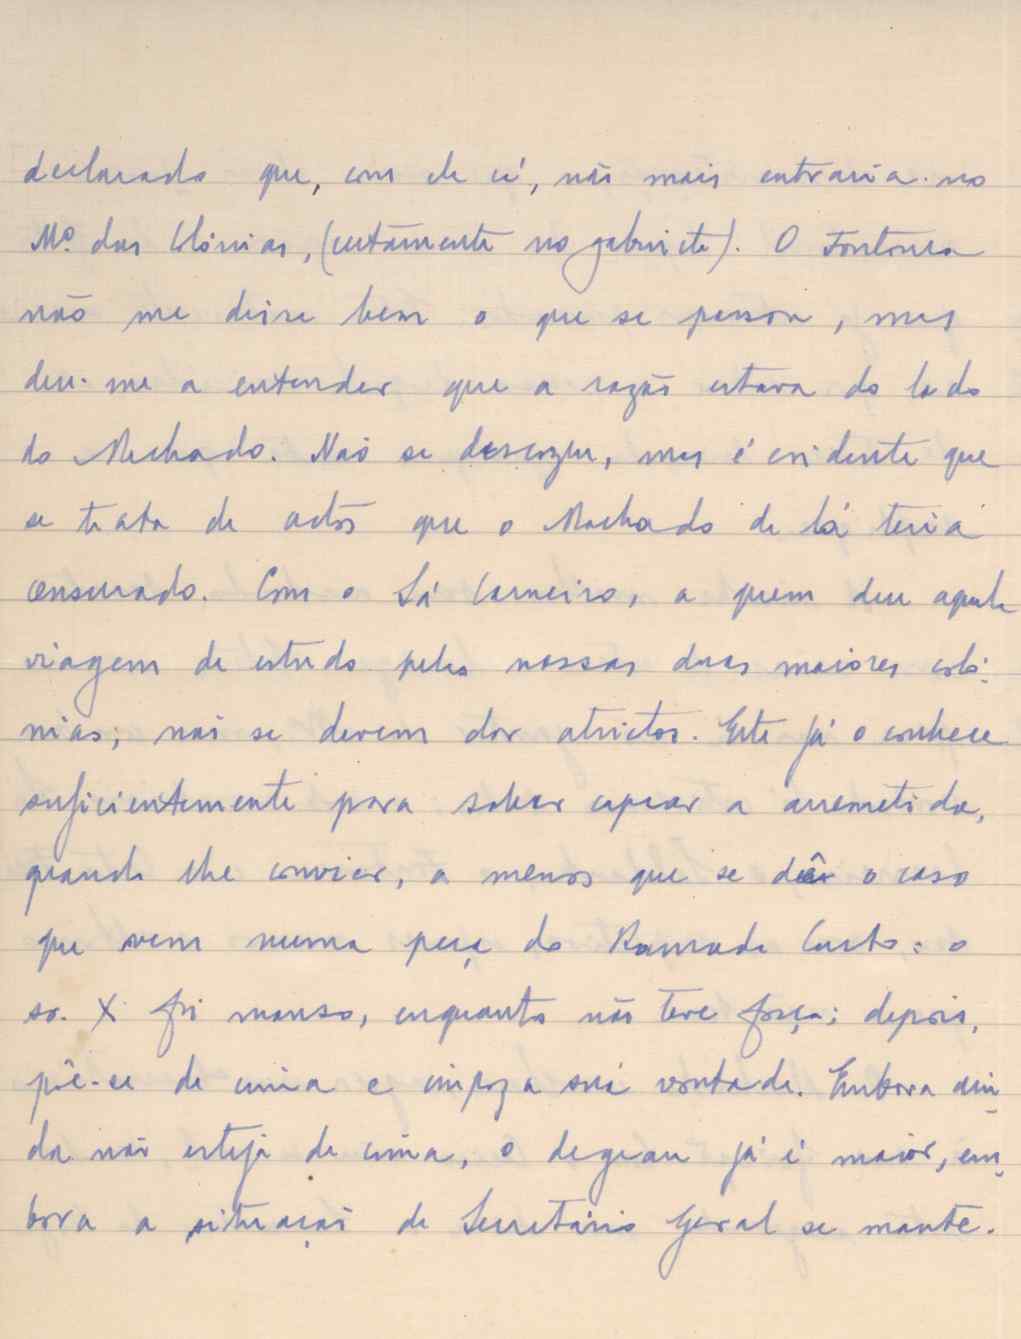 declarado que, com ele cá, não mais entraria no
Mº das Colónias, (certamente no gabinete). O Fontoura
não me disse bem o que se passou, mas
deu-me a entender que a razão estava do lado
do Machado. Não se descozeu, mas é evidente que
se trata de actos que o Machado de lá teria
censurado. Com o Sá Carneiro, a quem deu aquela
viagem de estudo pelas nossas duas maiores coló-
nias, não se devem dar atrictos. Este já o conhece
suficientemente para saber capear a arremetida,
quando lhe convier, a menos que se dê o caso
que vem numa peça do Ramada Curto: o
sr. X foi manso, enquanto não teve força; depois,
pôe-se de cima e impõz a sua vontade. Embora ain-
da não esteja de cima, o degrau já é maior, em-
bora a situação de Secretário Geral se mante-